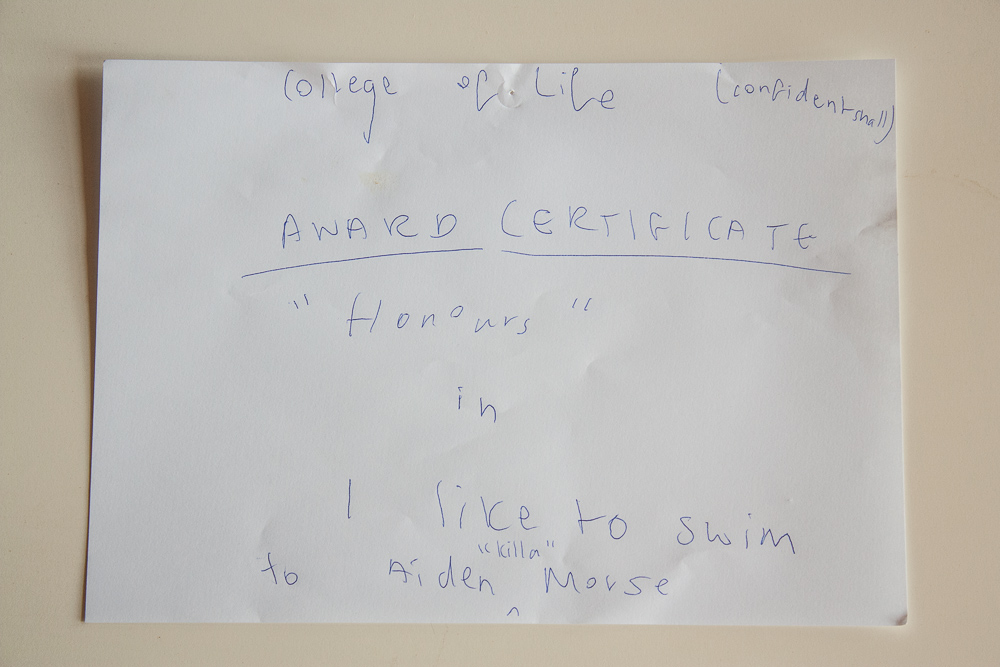 College of Life (confidentshall)
AWARD CERTIFICATE
"Honours"
in
I like to swim
"killa"
to Aiden ^ Morse